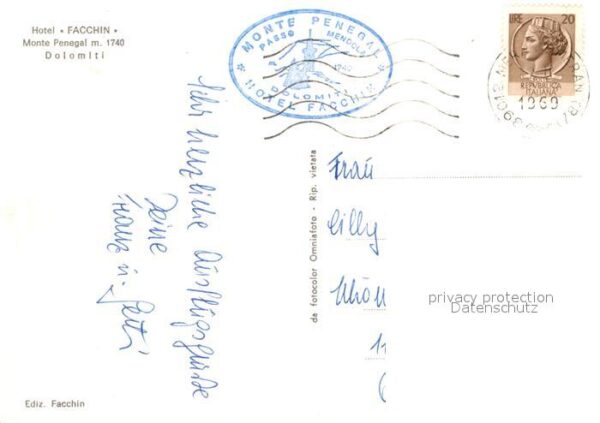 Hotel • FACCHIN •
Monte Penegal m. 1740
Dolomiti
MONTE PENEGAL
PASSO MENDOLA
1740
DOLOMITI
HOTEL FACCHIN
LIRE 20
REPVBBLICA
ITALIANA
39012 ME
1969
Sehr herzliche Ausflugsgrüße
Deine
Franz u.
da fotocolor Omniafoto - Rip. vietata
Frau
Cilly
privacy protection
Datenschutz
Ediz. Facchin